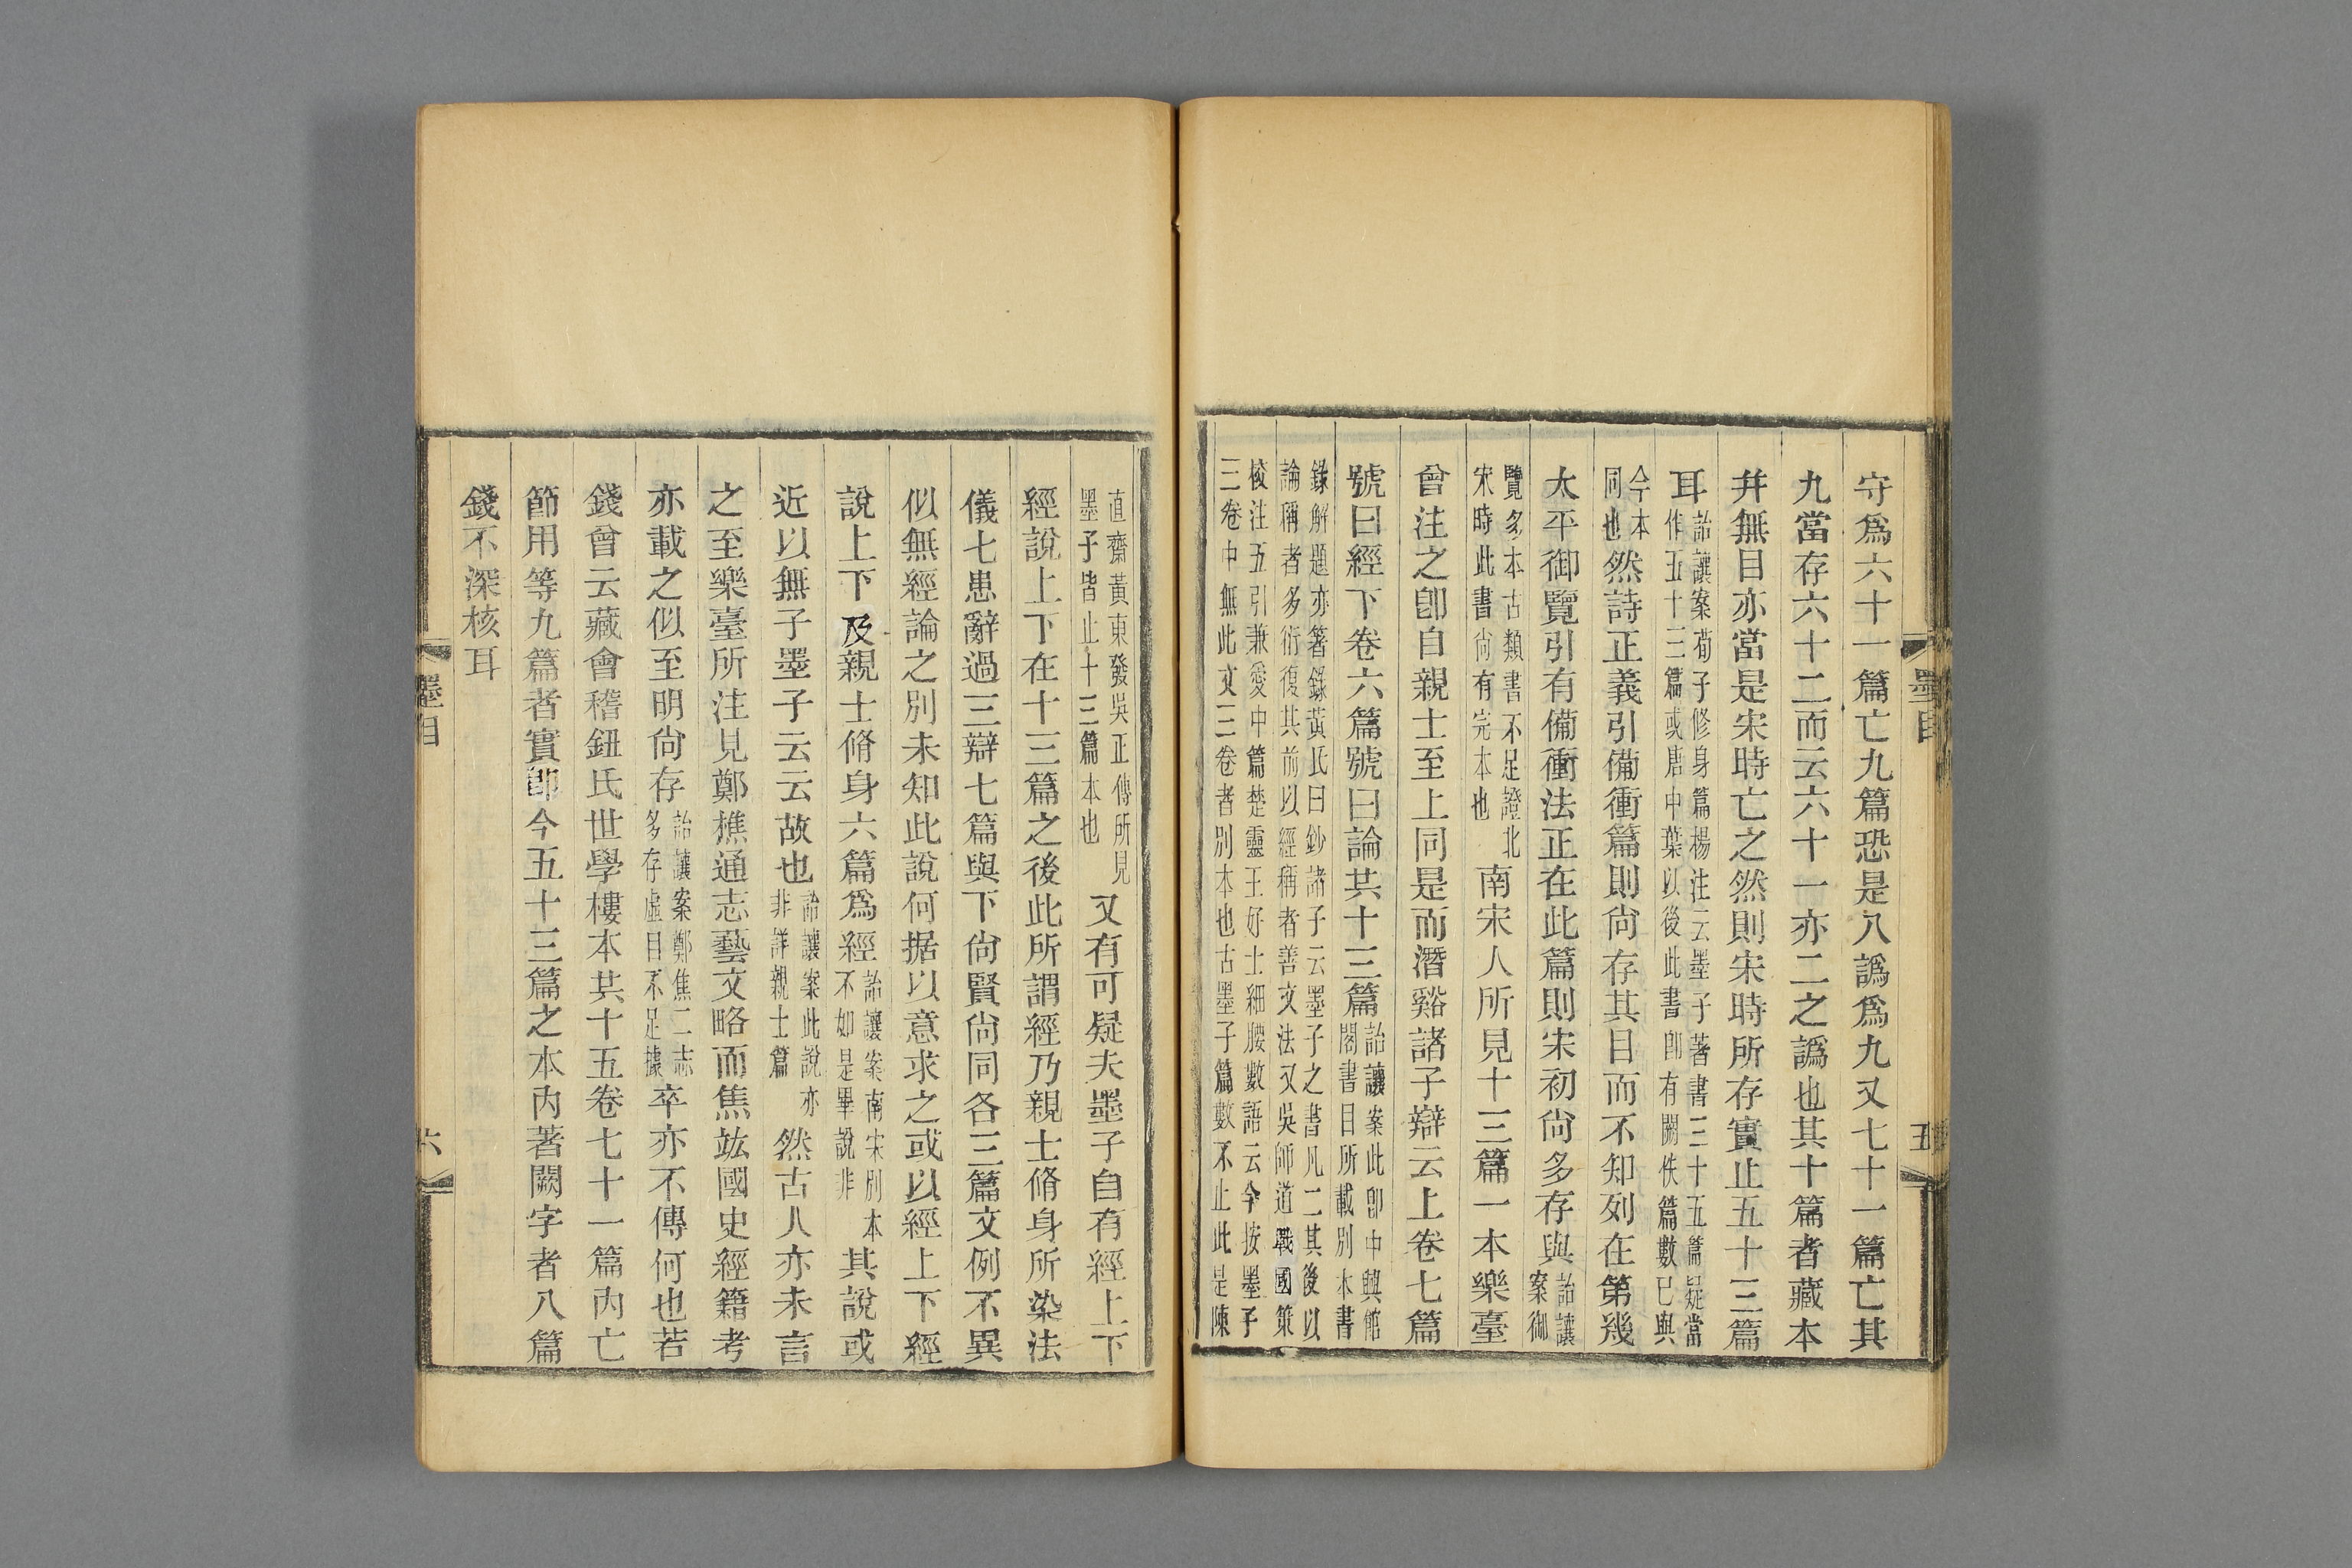 守爲六十一篇亡九篇恐是八譌爲九又七十一篇亡其
九當存六十二而云六十一亦二之譌也其十篇者藏本
幷無目亦當是宋時亡之然則宋時所存實止五十三篇
耳詒讓案荀子修身篇楊注云墨子著書三十五篇疑當作五十三篇或唐中葉以後此書卽有闕佚篇數已與
今本同也然詩正義引備衝篇則尙存其目而不知列在第幾
太平御覽引有備衝法正在此篇則宋初尙多存與詒讓案御
覽多本古類書不足證北宋時此書尙有完本也南宋人所見十三篇一本樂臺
曾注之卽自親士至上同是而潛谿諸子辯云上卷七篇
號曰經下卷六篇號曰論共十三篇詒讓案此卽中興館閣書目所載別本書
錄解題亦箸錄黃氏日鈔諸子云墨子之書凡二其後以論稱者多衍復其前以經稱者善文法又吳師道戰國策
校注五引兼愛中篇楚靈王好士細腰數語云今按墨子三卷中無此文三卷者別本也古墨子篇數不止此是陳
墨目
五
直齋黃東發吳正傳所見墨子皆止十三篇本也又有可疑夫墨子自有經上下
經說上下在十三篇之後此所謂經乃親士脩身所染法
儀七患辭過三辯七篇與下尙賢尙同各三篇文例不異
似無經論之別未知此說何据以意求之或以經上下經
說上下及親士脩身六篇爲經詒讓案南宋別本不如是畢說非其說或
近以無子墨子云云故也詒讓案此說亦非詳親士篇然古人亦未言
之至樂臺所注見鄭樵通志藝文略而焦竑國史經籍考
亦載之似至明尙存詒讓案鄭焦二志多存虛目不足據卒亦不傳何也若
錢曾云藏會稽鈕氏世學樓本共十五卷七十一篇內亡
節用等九篇者實卽今五十三篇之本內著闕字者八篇
錢不深核耳
墨目
六